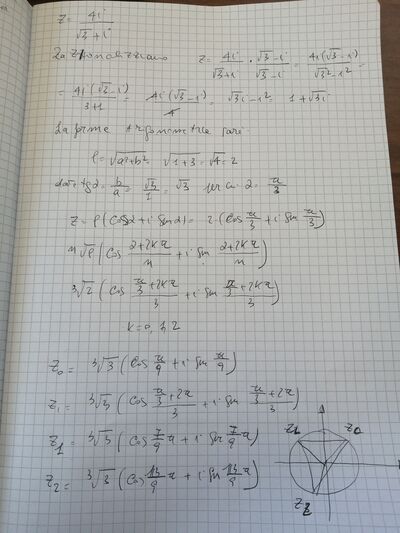 z = 4i / √3+i
z = 4i / √3+i · √3-i / √3-i = 4i(√3-i) / √3²-i² =
= 4i(√3-i) / 3+1 = 4i(√3-i) / 4 = √3i-i² = 1+√3i
La forma trigonometrica sarà
ρ = √a²+b² √1+3 = √4 = 2
tgα = b/a = √3/1 = √3 per cui α = π/3
z = ρ(cosα+i sinα) = 2·(cos π/3 + i sin π/3)
ⁿ√ρ (cos α+2kπ / n + i sin α+2kπ / n)
³√2 (cos π/3+2kπ / 3 + i sin π/3+2kπ / 3)
k=0,1,2
z₀ = ³√3 (cos π/9 + i sin π/9)
z₁ = ³√3 (cos π/3+2π / 3 + i sin π/3+2π / 3)
z₁ = ³√3 (cos 7/9 π + i sin 7/9 π)
z₂ = ³√3 (cos 13/9 π + i sin 13/9 π)
z₁ z₀
z₂